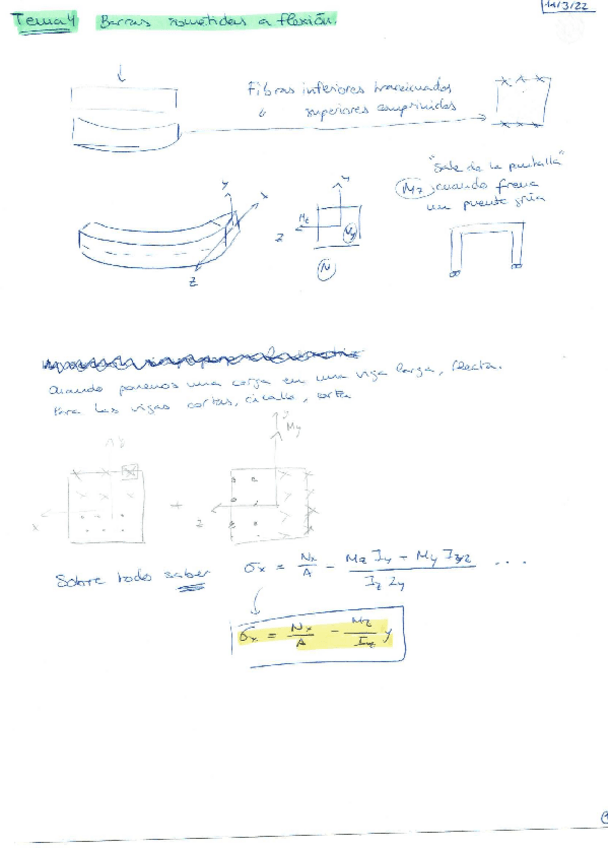 Tema 4 Barras sometidas a flexión.
14/3/22
Fibras inferiores traccionadas
superiores comprimidas
"Sale de la pantalla"
Mz, cuando frena
un puente grúa
y
x
z
y
Mz
My
z
N
Cuando ponemos una carga en una viga larga, flecta.
Para las vigas cortas, cizalla, corta
y
My
x
+
z
Sobre todo saber
σx = Nx/A - (Mz Iy + My Izy)/(Iz Iy) ....
σx = Nx/A - Mz/Iz y